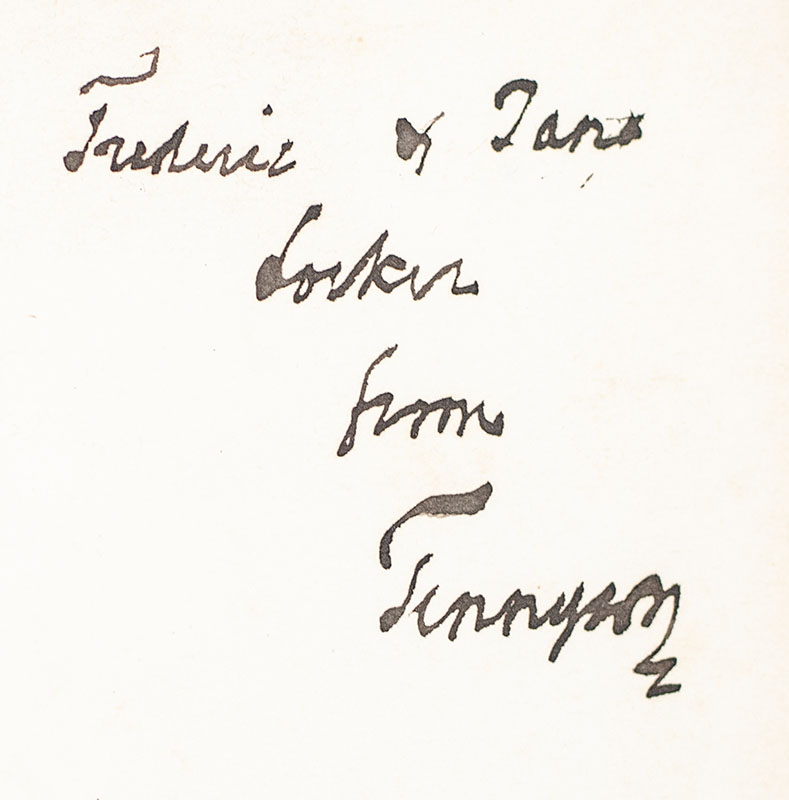 Frederic & Jane
Locker
from
Tennyson